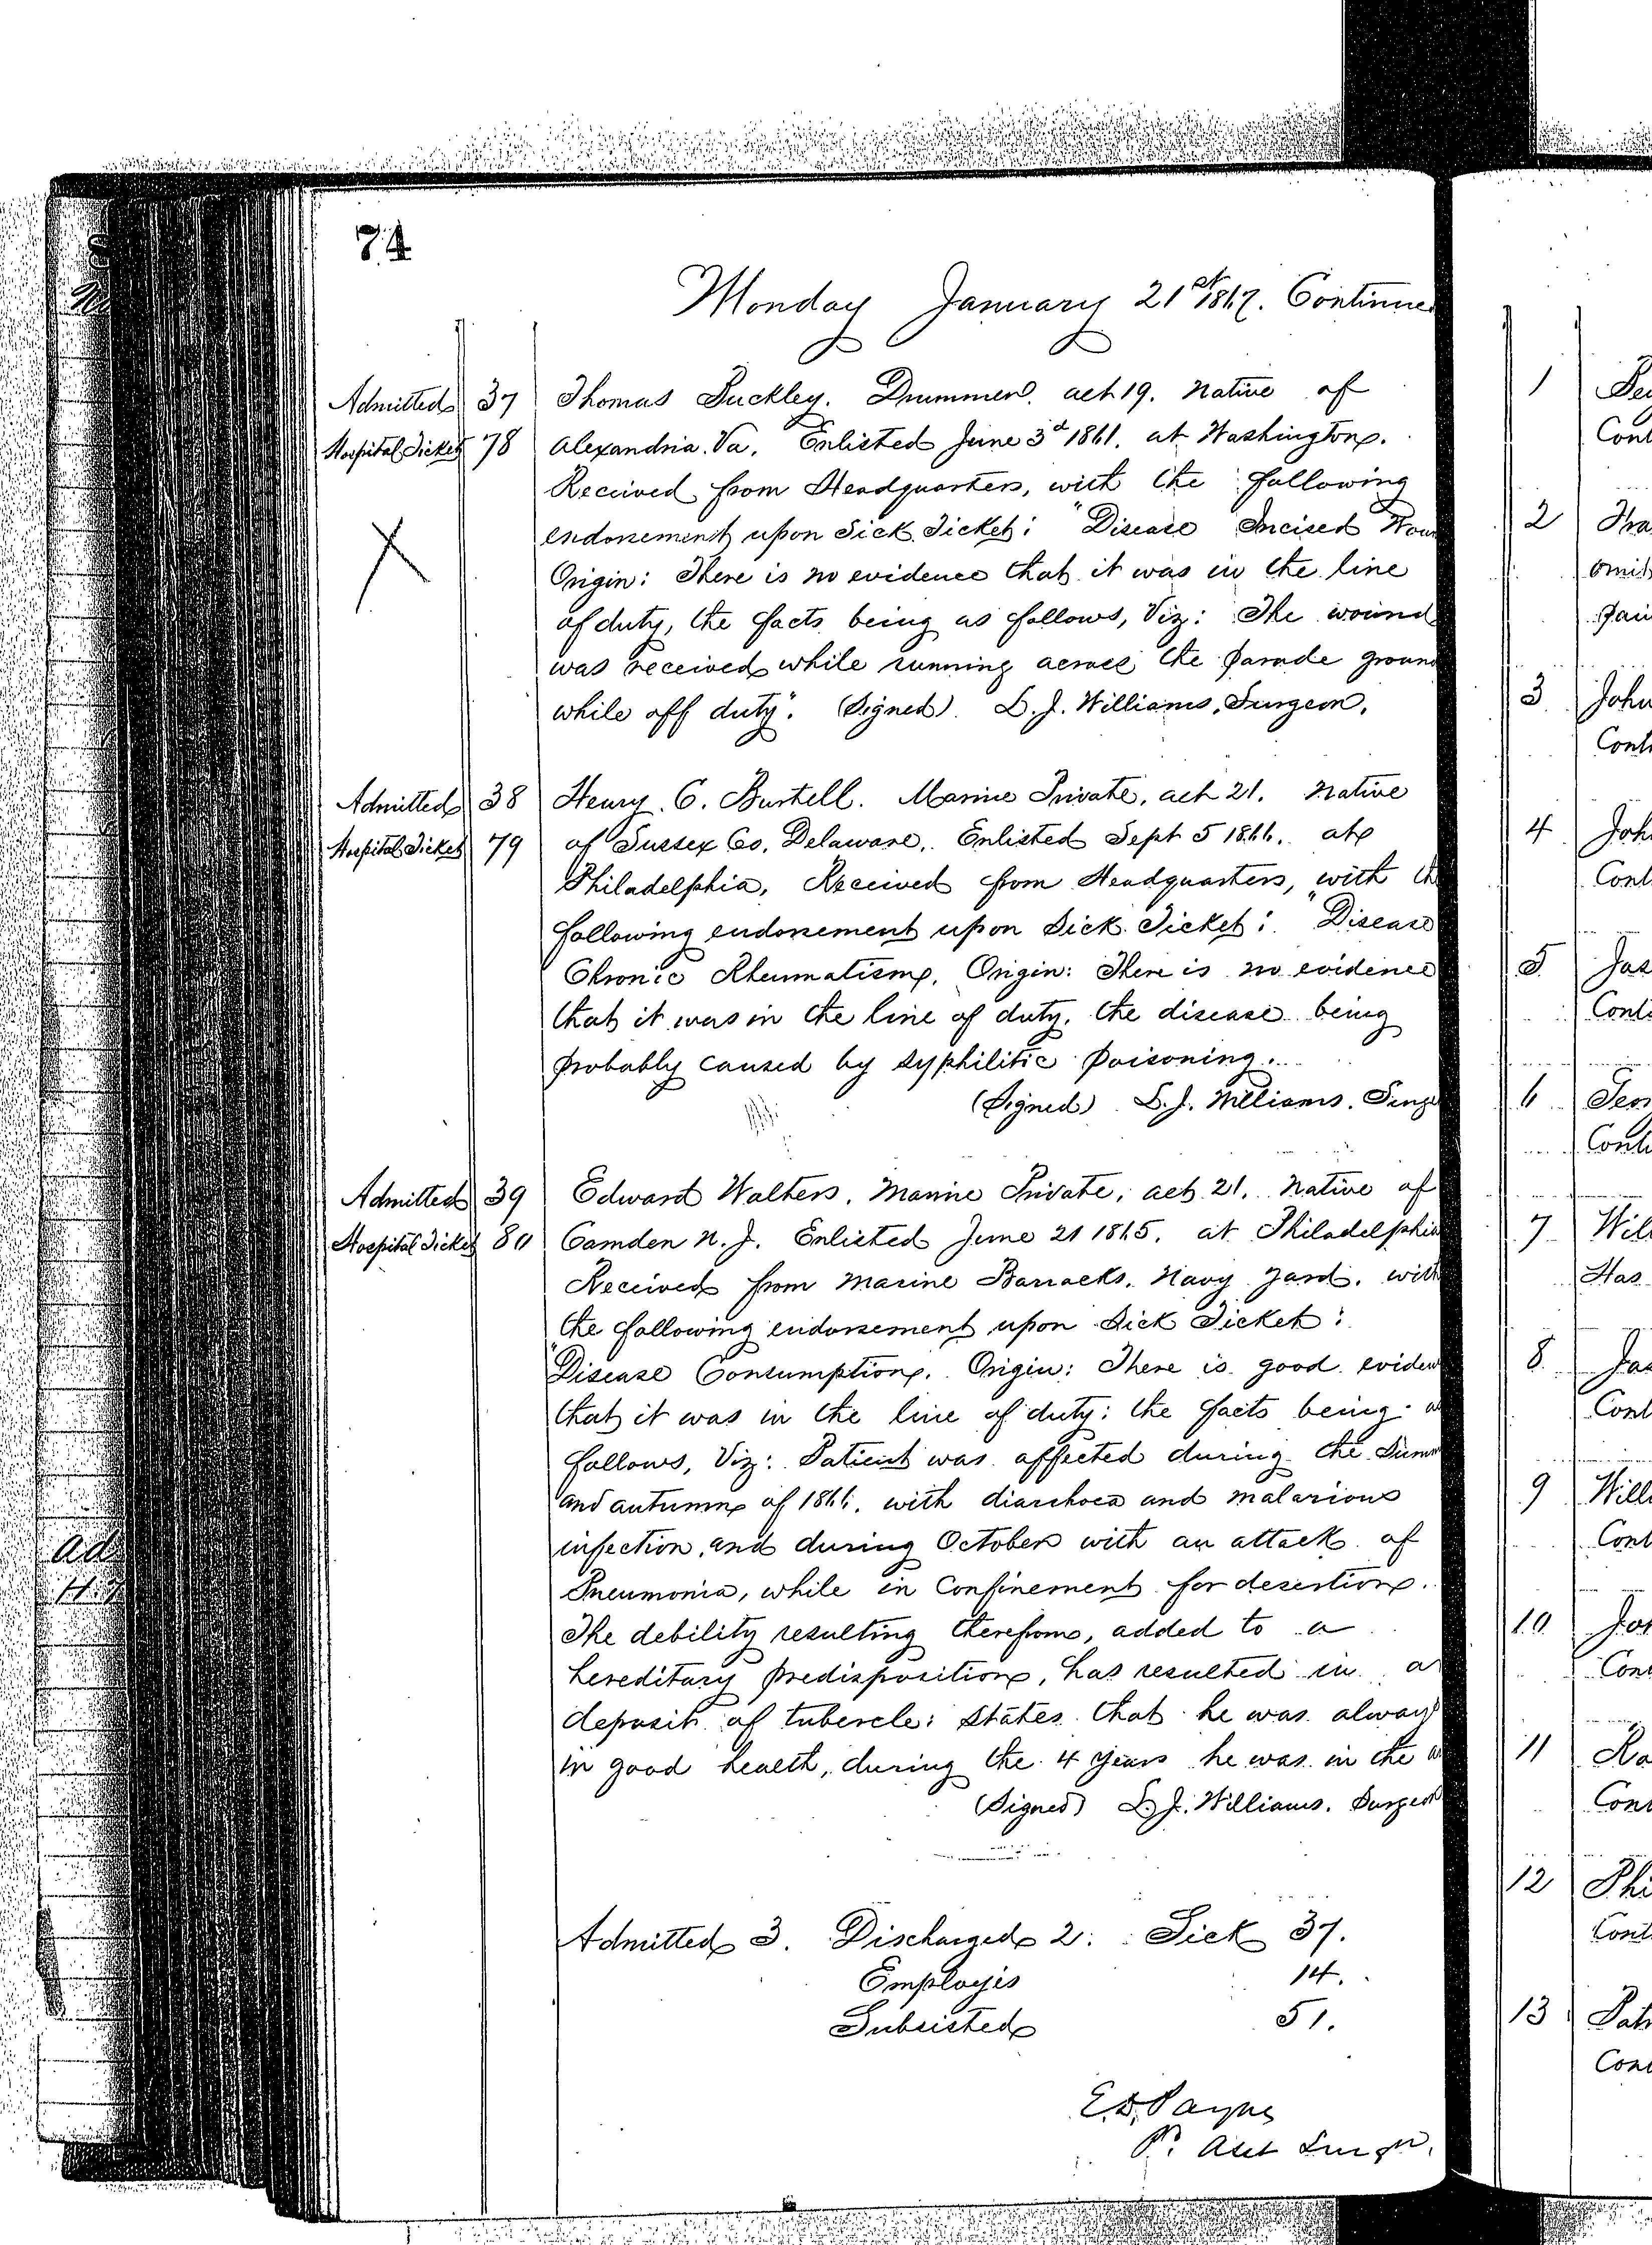 74
Monday January 21st 1867. Continue
Admitted 37 Thomas Buckley. Drummer. aet 19. Native of
Hospital Ticket 78 Alexandria. Va. Enlisted June 3d 1861. at Washington.
Received from Headquarters, with the following
endorsement upon Sick Ticket: "Disease Incised Woun
Origin: There is no evidence that it was in the line
of duty, the facts being as follows, Viz: The wound
was received while running across the parade groun
while off duty". (Signed). D. J. Williams, Surgeon.
Admitted 38 Henry. C. Burtell. Marine Private, aet 21. Native
Hospital Ticket 79 of Sussex Co. Delaware. Enlisted Sept 5 1866. at
Philadelphia, Received from Headquarters, with th
following endorsement upon Sick Ticket: "Disease
Chronic Rheumatism, Origin: There is no evidence
that it was in the line of duty, the disease being
probably caused by syphilitic poisoning.
(Signed) D. J. Williams. Surge
Admitted 39 Edward Walters, Marine Private, aet. 21. Native of
Hospital Ticket 80 Camden N. J. Enlisted June 21 1865. at Philadelphia
Received from Marine Barracks. Navy Yard. with
the following endorsement upon Sick Ticket:
"Disease Consumption. Origin: There is good eviden
that it was in the line of duty: the facts being a
follows, Viz: Patient was affected during the Summ
and autumn of 1866. with diarrhoea and malarious
infection, and during October with an attack of
Pneumonia, while in Confinement for desertion.
The debility resulting therefrom, added to a
hereditary predisposition, has resulted in a
deposit of tubercle: States that he was always
in good health, during the 4 years he was in the a
(Signed) D. J. Williams. Surgeon
Admitted 3. Discharged 2. Sick 37.
Employis 14.
Subsisted 51.
E. D. Payne
P. Asst Surgn.
1
Cont
2
omit
3 John
Cont
4 Joh
Cont
5 Jas
Conti
6
Conti
7 Wil
Has
8 Jas
Cont
9 Will
Cont
10 Joh
Con
11
Con
12 Phi
Cont
13 Pat
Con